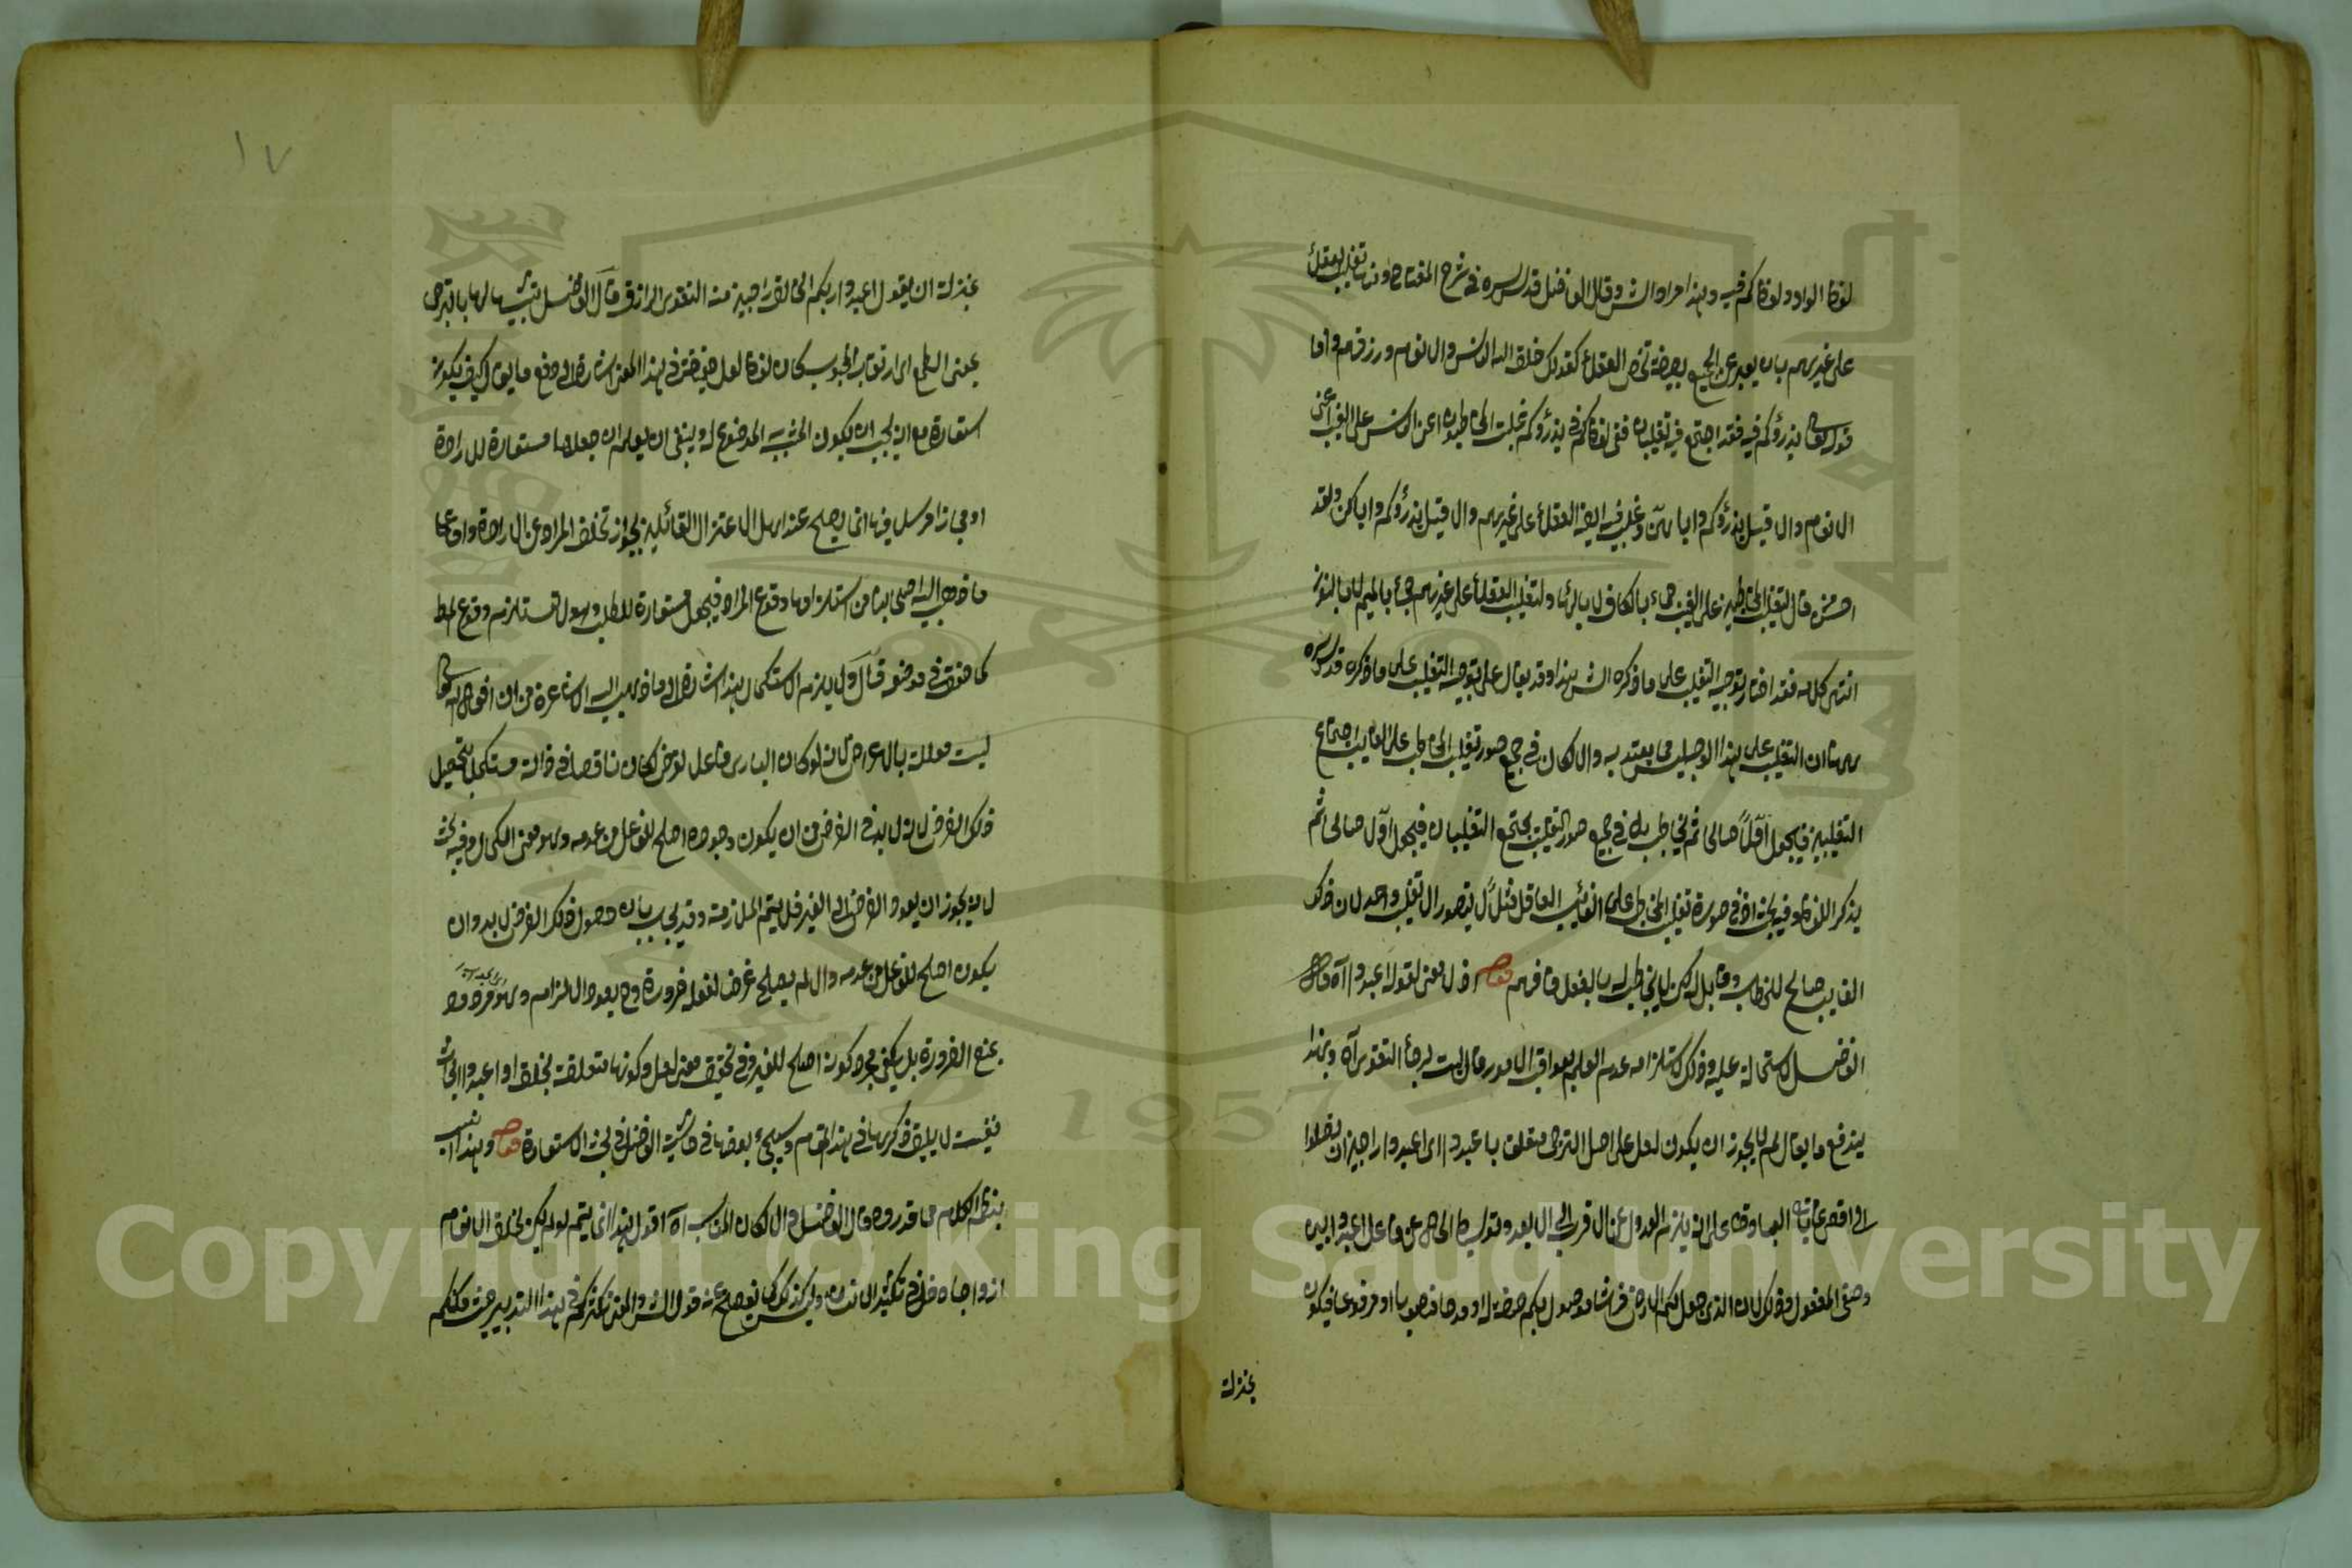 لفظ الواو ولفظ كم فيه وبهذا مراد الش وقال الفاضل قدس سره في شرح المفتاح ومنها تغليب العقلاء
على غيرهم بان يعبر عن الجميع بصيغة تخص العقلاء كقولك خلق الله الناس والانعام ورزقهم واما
قوله تعالى يذرؤكم فيه فقد اجتمع فيه تغليبان ففي لفظ كم في يذرؤكم غلب المخاطبون اعني الناس على الغيب اعني
الانعام والا قيل يذرؤكم واياهن وغلب فيه ايضا العقلاء على غيرهم والا قيل يذرؤكم واياكن ولقد
احسن قال لتغليب المخاطبين على الغيب جيء بالكاف لا بالهاء ولتغليب العقلاء على غيرهم جيء بالميم لا بالنون
انتهى كلامه فقد اختار توجيه التغليب على ما ذكره الش هذا وقد يقال على توجيه التغليب على ما ذكره قدس سره
ههنا ان التغليب على هذا الوجه ليس مما يعتد به والا لكان في جميع صور تغليب المخاطب على الغايب اجتماع
التغليبين فيجعل اولا صالحا ثم يخاطب بل في جميع صور التغليب يجتمع التغليبان فيجعل اولا صالحا ثم
يذكر اللفظ وفيه بحث اذ في صورة تغليب المخاطب على الغائب العاقل مثلا لا يتصور الا تغليب واحد لان ذلك
الغايب صالح للخطاب وقابل له لكن لا يخاطب له بالفعل فافهم قوله اذ لا معنى لقوله اعبدوا آه قال
الفاضل لاستحالة عليه وذلك لاستلزامه عدم العلم بعواقب الامور قال ليت لرجاء التقوى آه وبهذا
يندفع ما يقال لم لا يجوز ان يكون لعل على اصل الترجي متعلقا باعبدوا اى اعبدوا راجين ان تصلوا
الى اقصى غاية العبادة على انه يلزم العدول عن الاقرب الى الابعد وتوسط الحال عن فاعل اعبدوا بين
وصفي المفعول وذلك لان الذي جعل لكم الارض فراشا موصول بكم صفة له او مدحا منصوبا او مرفوعا فيكون
بمنزلة
١٧
بمنزلة ان يقول اعبدوا ربكم الخالق راجين منه التقوى الرازق قال الفاضل تشبيها لها بالترجي
بمعنى الطمع اى ارتقاب المحبوب كان لفظ لعل حقيقة في هذا المعنى اشارة الى دفع ما يقال كيف يكون
استعارة مع انه يجب ان يكون المشبه الموضوع له وينبغي ان يعلم ان جعلها مستعارة للارادة
او مجازا مرسلا فيها انما يصلح عند اهل الاعتزال القائلين بجواز تخلف المراد عن الارادة واما على
ما ذهب اليه اصحابنا من استلزامها وقوع المراد فيجعل مستعارة للطلب وهو لا يستلزم وقوع المط
كما حقق في موضعه قال ولا يلزم الاستكمال بهذا اشارة الى ما ذهب اليه الاشاعرة من ان افعال الله تعالى
ليست معللة بالاغراض لانه لو كان البارى فاعلا لغرض لكان ناقصا في ذاته مستكملا بتحصيل
ذلك الغرض لانه لا بد في الغرض من ان يكون وجوده اصلح للفاعل من عدمه وهو معنى الكمال وفيه بحث
لانه يجوز ان يعود الغرض الى الغير فلا يتم الملازمة وقد يجاب بان حصول ذلك الغرض لا بد وان
يكون اصلح للفاعل من عدمه والا لم يصلح غرضا لفعله ضرورة وح يعود الالزام وهو مردود
بمنع الضرورة بل يكفي مجرد كونه اصلح للغير وفي تحقيق معنى لعل وكونها متعلقة بخلق او اعبدوا ابحاث
نفيسة لا يليق ذكرها في هذا المقام وسيجيء بعضها في حاشية الفاضل في بحث الاستعارة قوله وبهذا انسب
بنظم الكلام مما قدروه قال الفاضل والا لكان المناسب آه اقول بهذا انما يتم لو لم يكن لخلق الانعام
ازواجا دخل في تكثير الانسان وليس كذلك كما يفصح عنه قول الش والمعنى نكثركم في هذا التدبير حيث مكنكم